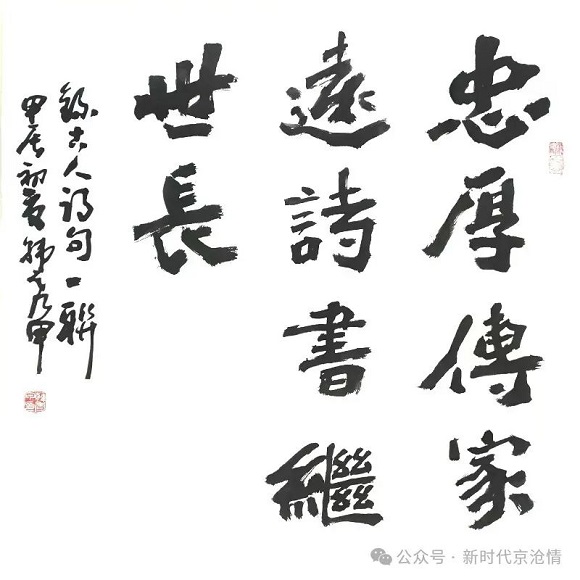 忠厚傳家
遠詩書繼
世長
錄古人詩句一聯
甲辰初夏韩乃甲
公众号·新时代京沧情